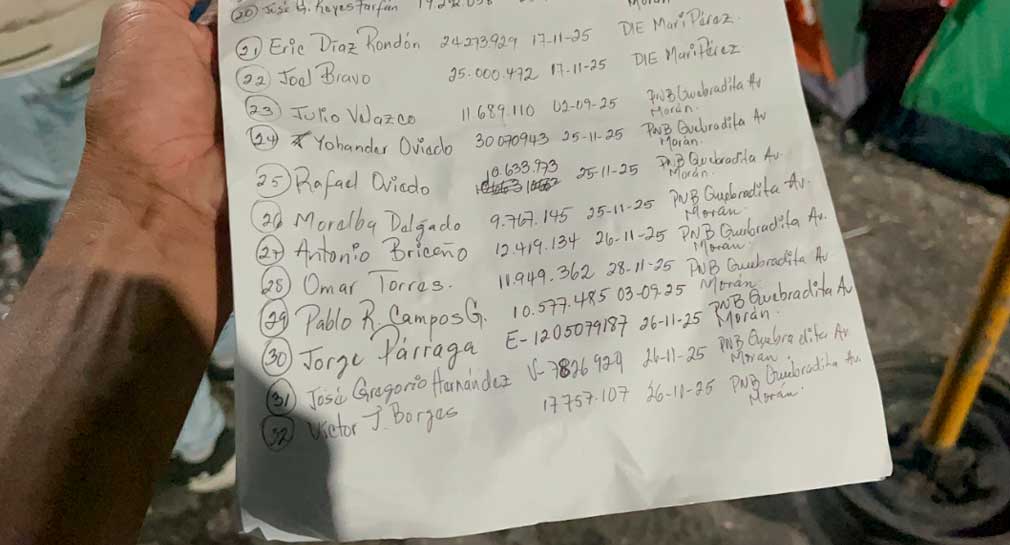 (20) José G. Reyes Farfán
(21) Eric Diaz Rondón 24273.929 17-11-25 DIE Mari Pérez.
(22) Joel Bravo 25.000.472 17-11-25 DIE Mari Pérez
(23) Julio Velazco 11.689.110 02-09-25 PNB Quebradita Av Morán.
(24) Yohander Oviedo 30070943 25-11-25 PNB Quebradita Av Morán.
25) Rafael Oviedo 10.633.973 25-11-25 PNB Quebradita Av. Morán.
26 Moralba Delgado 9.767.145 25-11-25 PNB Quebradita Av. Morán
(27) Antonio Briceño 12.419.134 26-11-25 PNB Quebradita Av. Morán
(28) Omar Torres. 11.949.362 28-11-25 PNB Quebradita Av Morán
(29) Pablo R. Campos G. 10.577.485 03-09-25 PNB Quebradita Av Morán.
(30) Jorge Párraga E-1205079187 26-11-25 PNB Quebradita Av Morán.
(31) José Gregorio Hernández V-7826929 26-11-25 PNB Quebradita Av. Morán.
(32) Victor J. Borges 17757.107 26-11-25